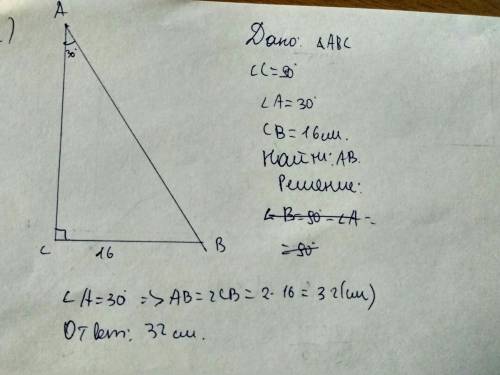 )
A
30°
C
16
B
Дано: ΔABC
∠C=90°
∠A=30°
CB=16см.
Найти: AB.
Решение:
∠B=90°-∠A=
=90°
∠A=30° => AB=2CB=2·16=32(см)
Ответ: 32см.